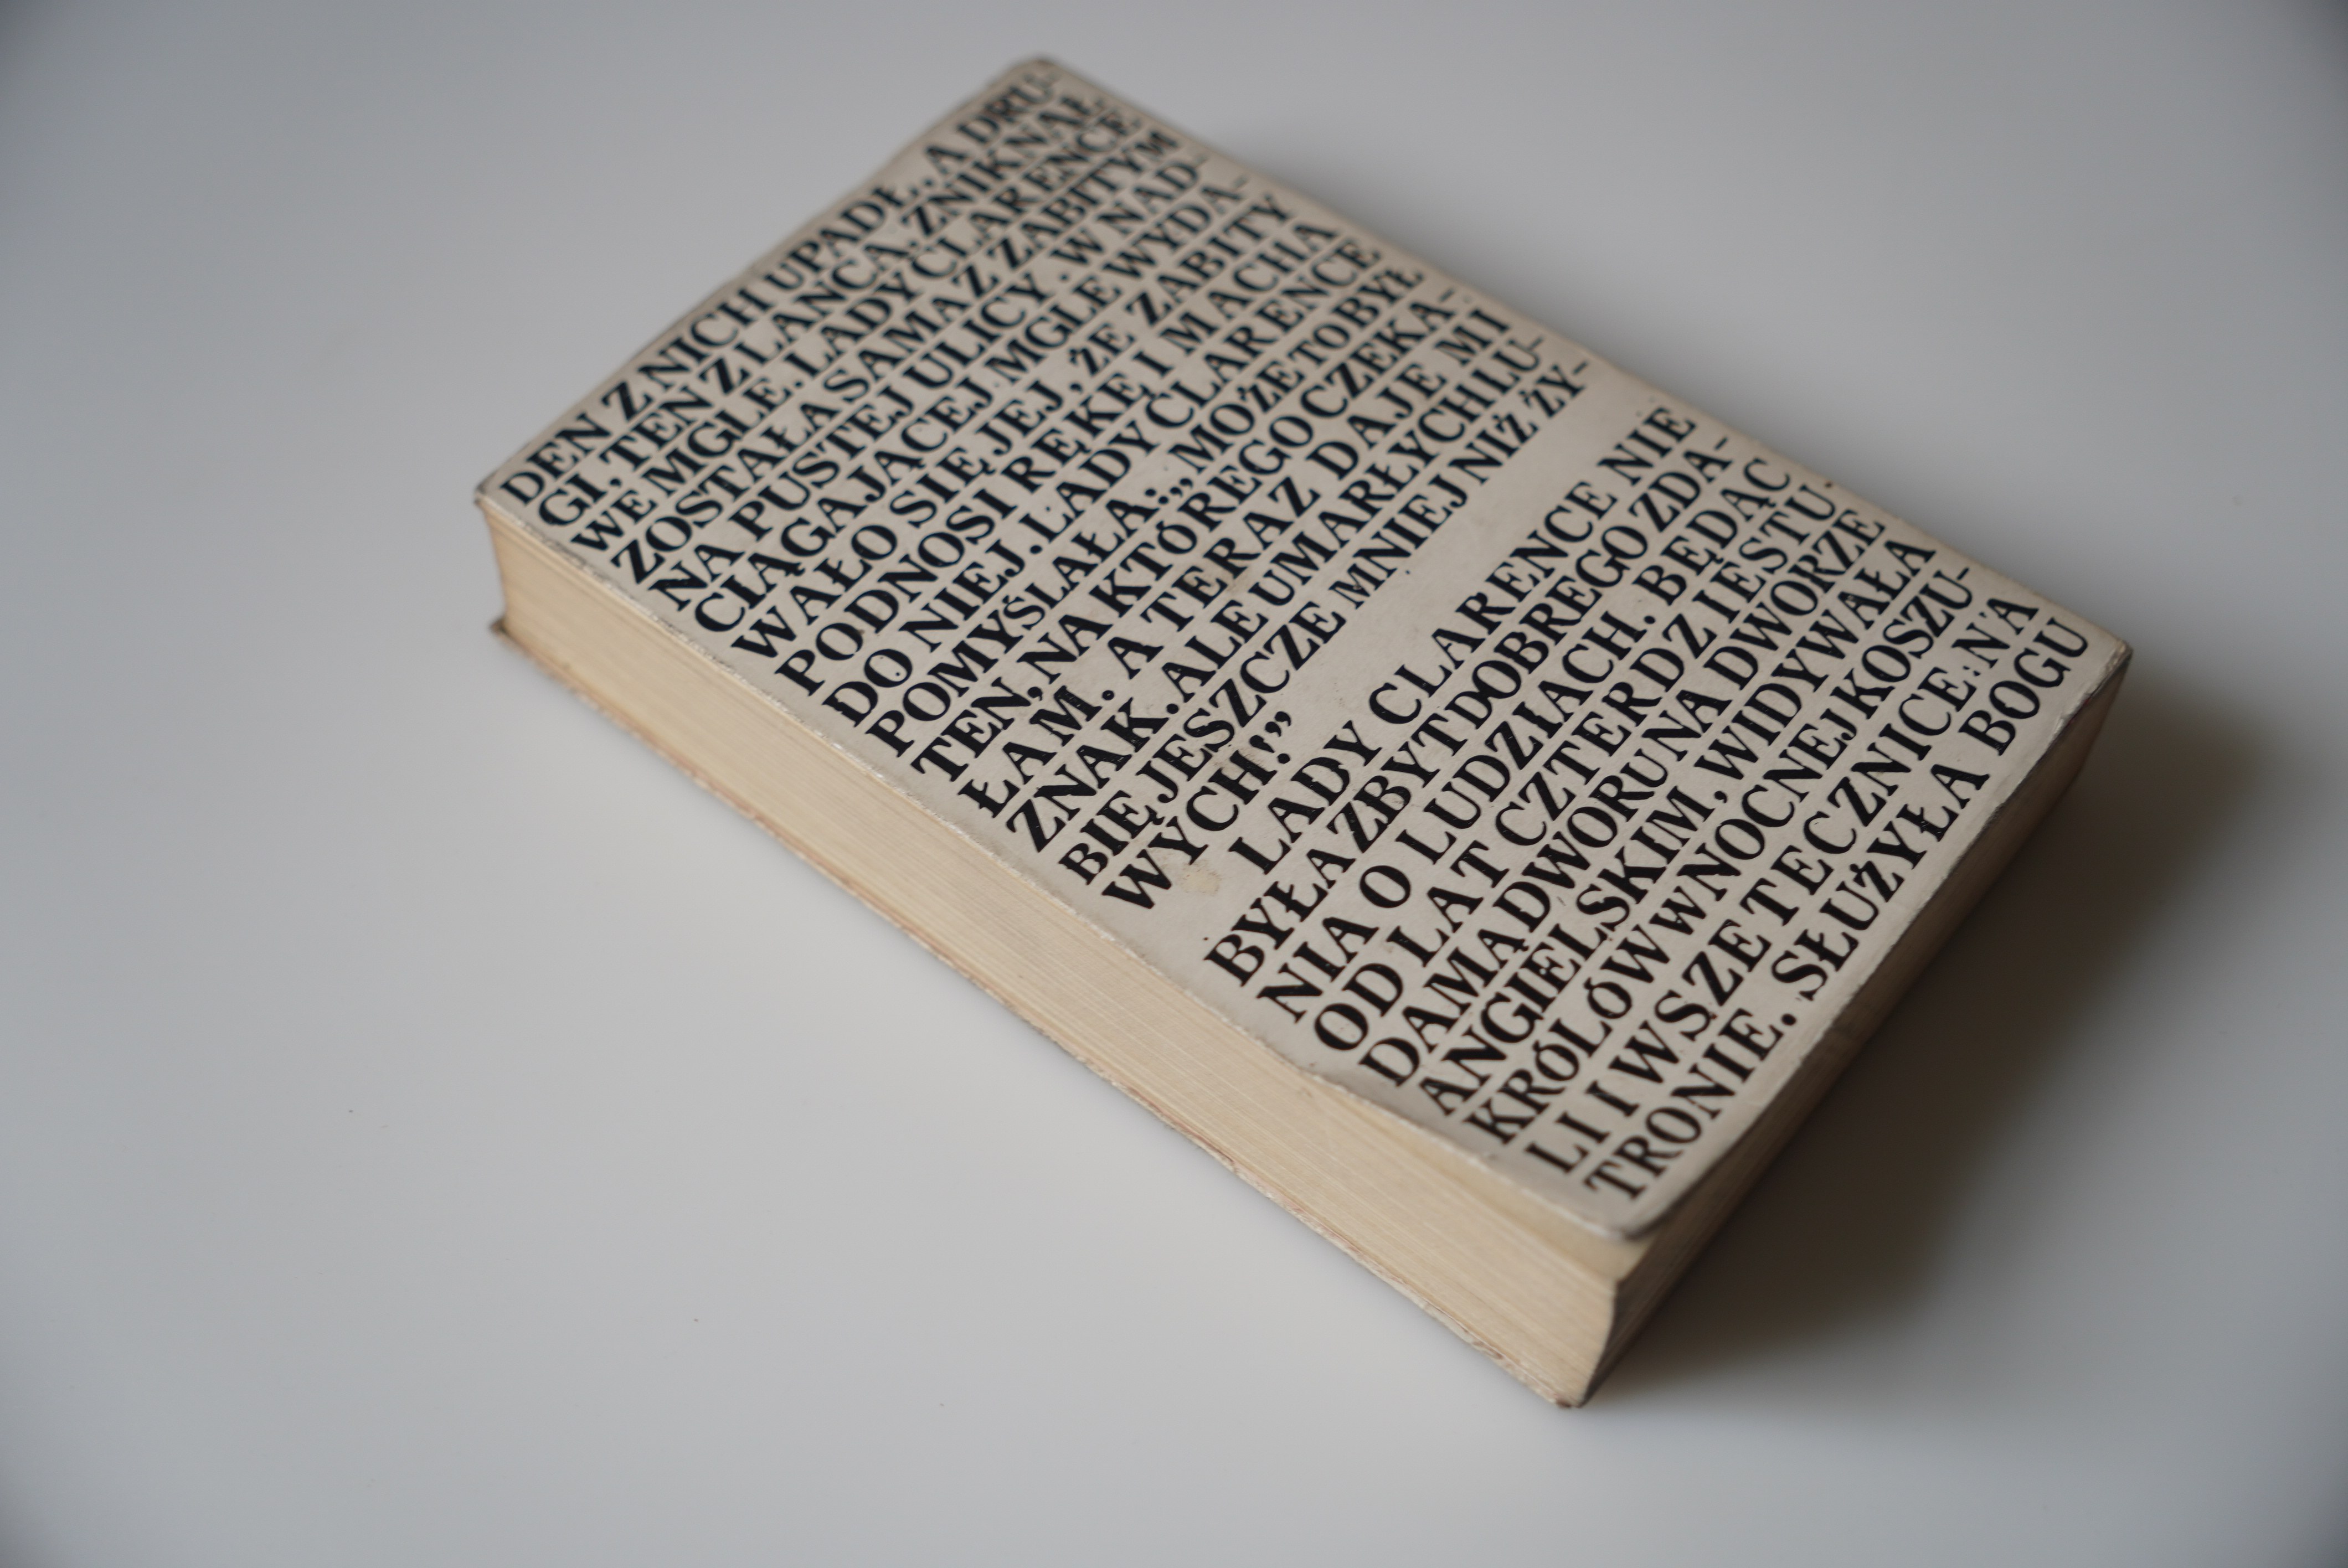 DEN Z NICH UPADŁ, A DRU-
GI, TEN Z LANCĄ, ZNIKNĄŁ
WE MGLE. LADY CLARENCE
ZOSTAŁA SAMA Z ZABITYM
NA PUSTEJ ULICY. W NAD-
CIĄGAJĄCEJ MGLE WYDA-
WAŁO SIĘ JEJ, ŻE ZABITY
PODNOSI RĘKĘ I MACHA
DO NIEJ. LADY CLARENCE
POMYŚLAŁA: „MOŻE TO BYŁ
TEN, NA KTÓREGO CZEKA-
ŁAM. A TERAZ DAJE MI
ZNAK. ALE UMARŁYCH LU-
BIĘ JESZCZE MNIEJ NIŻ ŻY-
WYCH!”
LADY CLARENCE NIE
BYŁA ZBYT DOBREGO ZDA-
NIA O LUDZIACH. BĘDĄC
OD LAT CZTERDZIESTU
DAMĄ DWORU NA DWORZE
ANGIELSKIM, WIDYWAŁA
KRÓLÓW W NOCNEJ KOSZU-
LI I WSZETECZNICE NA
TRONIE. SŁUŻYŁA BOGU